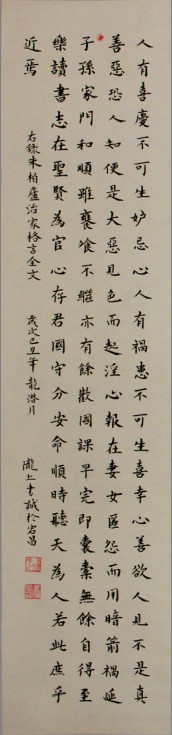 人有喜慶不可生妒忌心人有禍患不可生喜幸心善欲人見不是真
善惡恐人知便是大惡見色而起淫心報在妻女匿怨而用暗箭禍延
子孫家門和順雖饔飧不繼亦有餘歡國課早完即囊橐無餘自得至
樂讀書志在聖賢為官心存君國守分安命順時聽天為人若此庶乎
近焉
右錄朱柏廬治家格言全文
歲次己丑年龍潛月
隴上書誠於宕昌